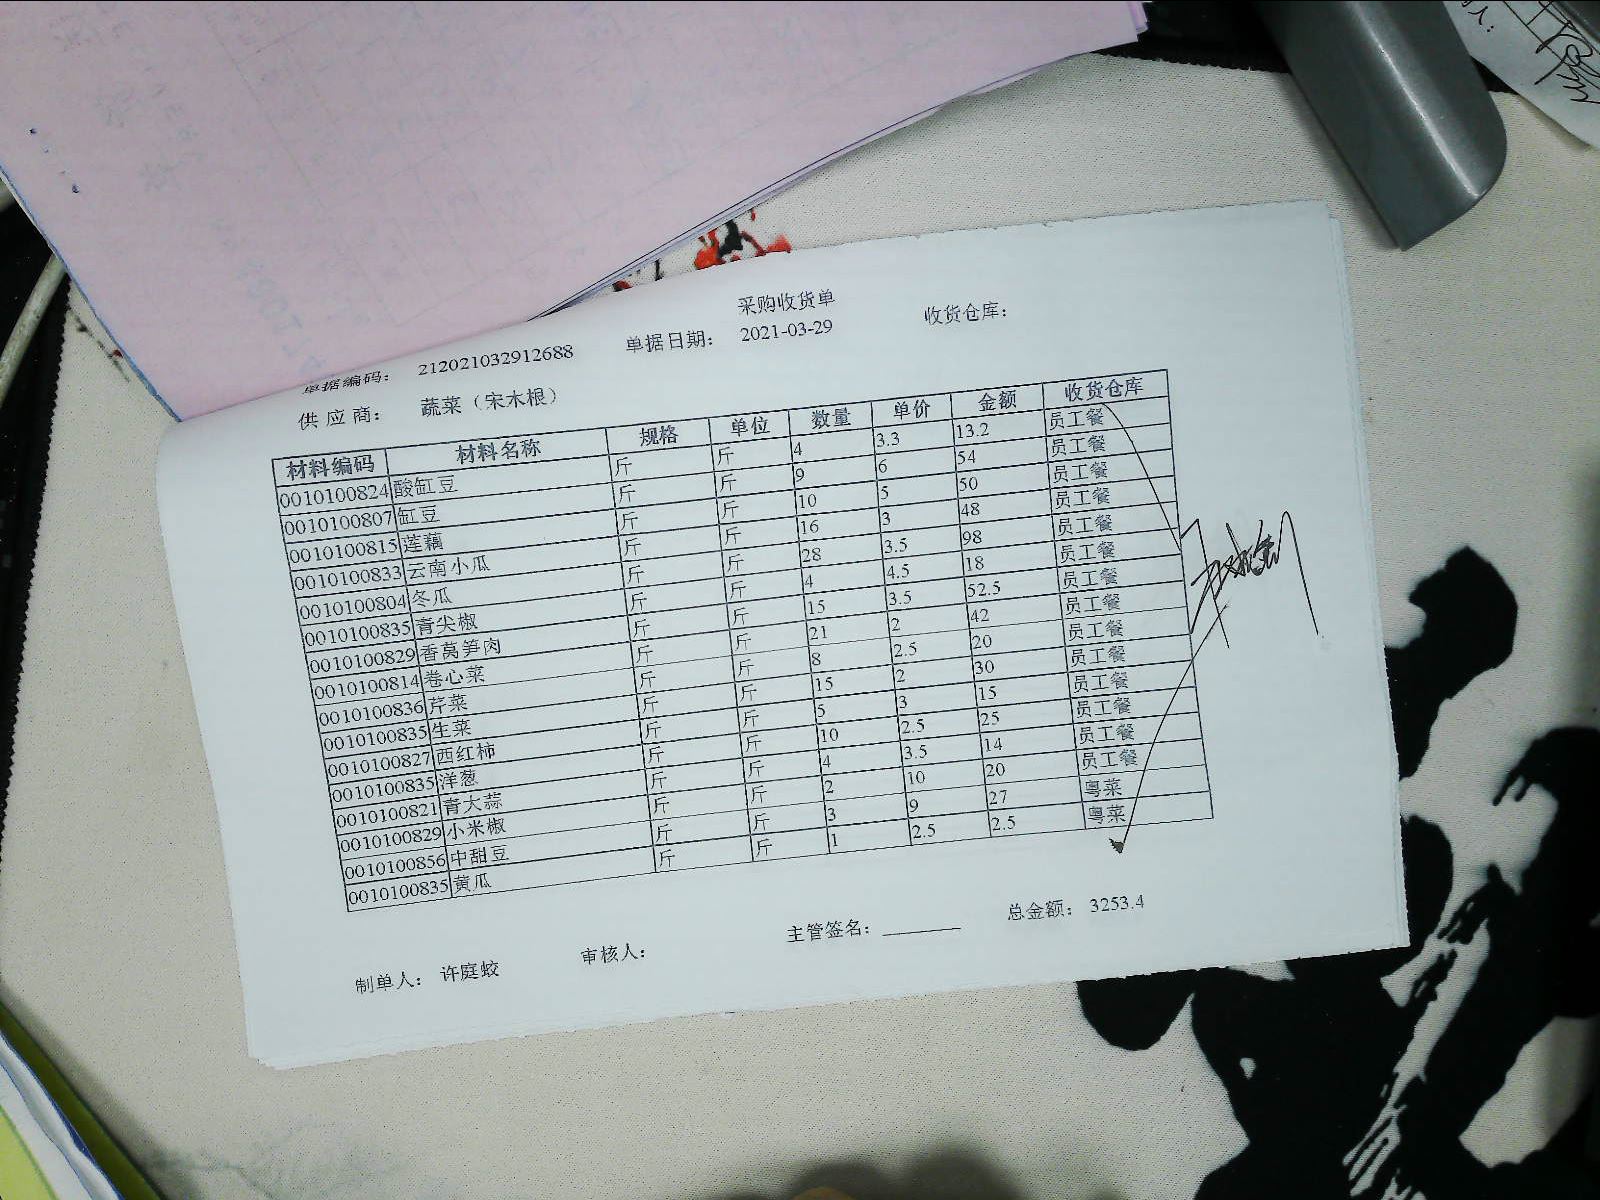 采购收货单
单据编码： 212021032912688 单据日期： 2021-03-29 收货仓库：
供 应 商： 蔬菜（宋木根）
材料编码 材料名称 规格 单位 数量 单价 金额 收货仓库
0010100824 酸缸豆 斤 斤 4 3.3 13.2 员工餐
0010100807 缸豆 斤 斤 9 6 54 员工餐
0010100815 莲藕 斤 斤 10 5 50 员工餐
0010100833 云南小瓜 斤 斤 16 3 48 员工餐
0010100804 冬瓜 斤 斤 28 3.5 98 员工餐
0010100835 青尖椒 斤 斤 4 4.5 18 员工餐
0010100829 香莴笋肉 斤 斤 15 3.5 52.5 员工餐
0010100814 卷心菜 斤 斤 21 2 42 员工餐
0010100836 芹菜 斤 斤 8 2.5 20 员工餐
0010100835 生菜 斤 斤 15 2 30 员工餐
0010100827 西红柿 斤 斤 5 3 15 员工餐
0010100835 洋葱 斤 斤 10 2.5 25 员工餐
0010100821 青大蒜 斤 斤 4 3.5 14 员工餐
0010100829 小米椒 斤 斤 2 10 20 员工餐
0010100856 中甜豆 斤 斤 3 9 27 粤菜
0010100835 黄瓜 斤 斤 1 2.5 2.5 粤菜
制单人： 许庭蛟 审核人： 主管签名： 总金额： 3253.4